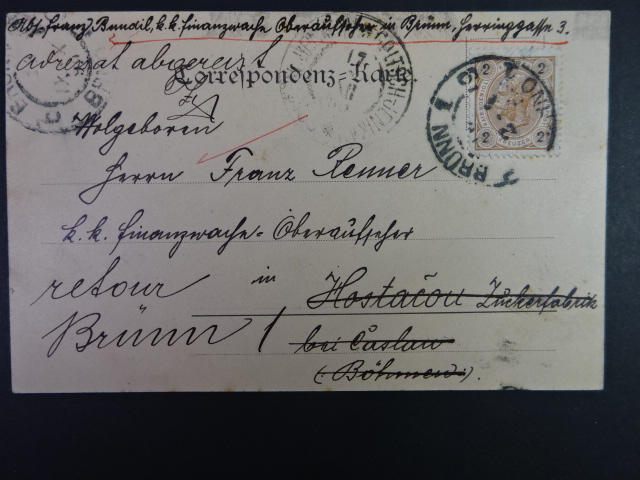 Abs. Franz Bendil, k.k. Finanzwache Oberaufseher in Brünn, Herringgasse 3.
adressat abgereist
Correspondenz-Karte.
Wolgeboren
Herrn Franz Renner
k.k. Finanzwache-Oberaufseher
in Hostačou Zuckerfabrik
retour
Brünn 1 bei Caslau
(Böhmen).
2 2
2 2
BRÜNN 1